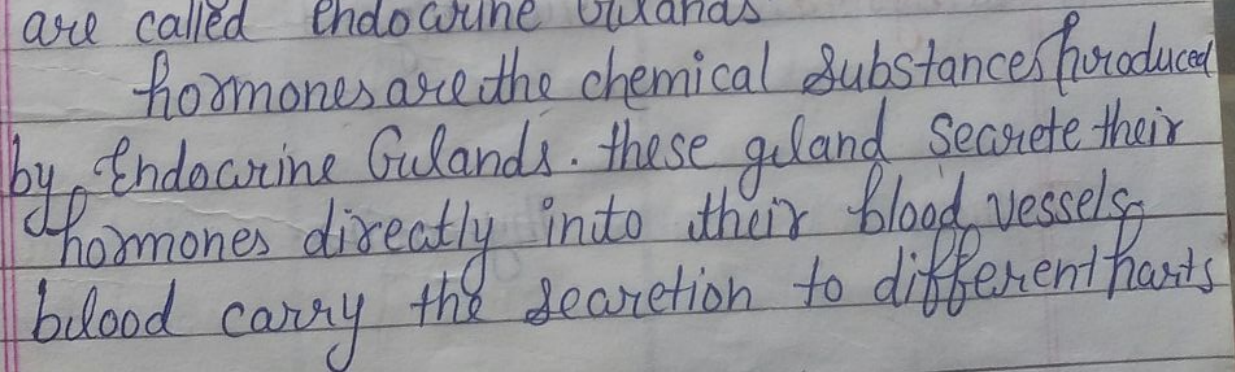 are called Endocrine Glands
hormones are the chemical Substances produced
by Endocrine Glands. these gland Secrete their
hormones directly into their blood vessels,
blood carry the secretion to different parts